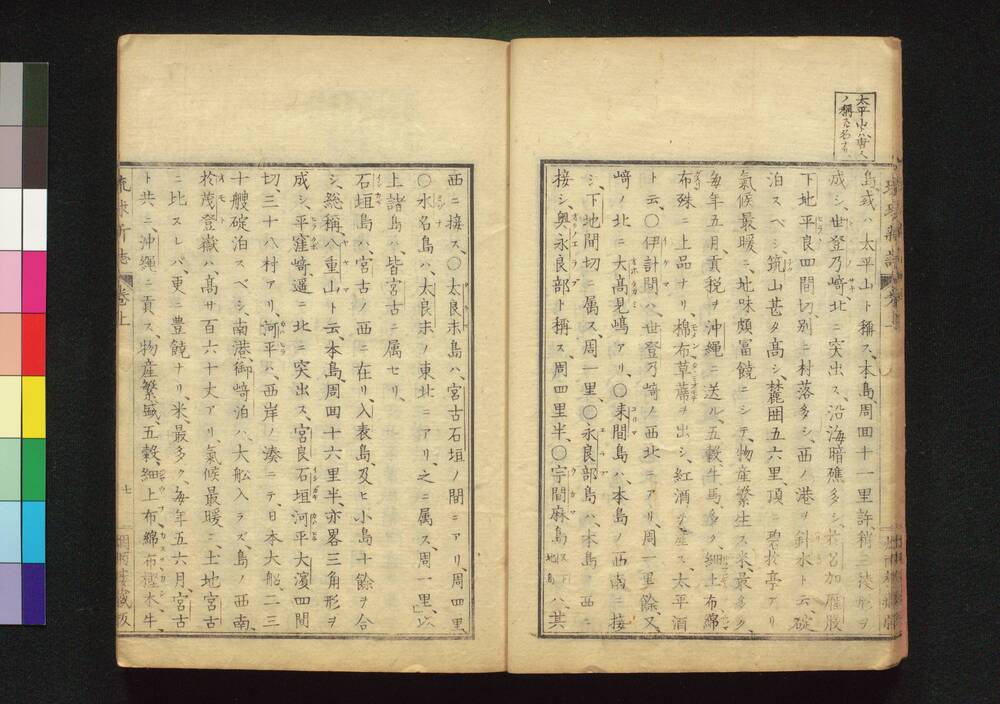 太平山ハ唐人
ノ稱スル名ナリ
島或ハ、太平山ト稱ス、本島、周回十一里許、稍三稜形ヲ
成シ、世登乃﨑、北ニ突出ス、沿海暗礁多シ、
下地平良四間切、別ニ村落多シ、西ノ港ヲ針水ト云、碇
泊スベシ、筑山甚タ高シ、麓囲五六里、頂ニ碧於亭アリ
氣候最暖ニ、地味頗冨饒ニシテ、物産繁生ス、米最多ク、
毎年五月、貢税ヲ沖繩ニ送ル、五穀、牛馬、多ク、細上布、綿
布殊ニ上品ナリ、棉布草蓆ヲ出シ、紅酒ヲ産ス、太平酒
ト云、〇伊計間ハ、世登乃﨑ノ西北ニアリ、周一里餘、又
﨑ノ北ニ大髙見嶋アリ、〇来間島ハ、本島ノ西南ニ接
シ、下地間切ニ属ス、周一里、〇永良部島ハ、本島ノ西ニ
接シ、奥永良部ト稱ス、周四里半、〇宇間麻島ハ、其
西ニ接ス、〇太良未島ハ、宮古石垣ノ間ニアリ、周四里、
〇水名島ハ、太良未ノ東北ニアリ、之ニ属ス、周一里、以
上諸島ハ、皆宮古ニ属セリ、
石垣島ハ、宮古ノ西ニ在リ、入表島及ヒ小島十餘ヲ合
シ、総稱、八重山ト云、本島周回十六里半、亦畧三角形ヲ
成シ、平窪﨑、遥ニ北ニ突出ス、宮良石垣河平大濱四間
切、三十八村アリ、河平ハ、西岸ノ湊ニテ日本大船、二三
十艘碇泊スベシ、南港、御﨑泊ハ、大舩入ラズ、島ノ西南、
於茂登嶽ハ髙サ百六十丈アリ、氣候最暖ニ、土地宮古
ニ比スレバ、更ニ豊饒ナリ、米最多ク、毎年五六月、宮古
ト共ニ、沖繩ニ貢ス、物産繁盛、五穀、細上布、綿布、樫木、牛、
卷上
七